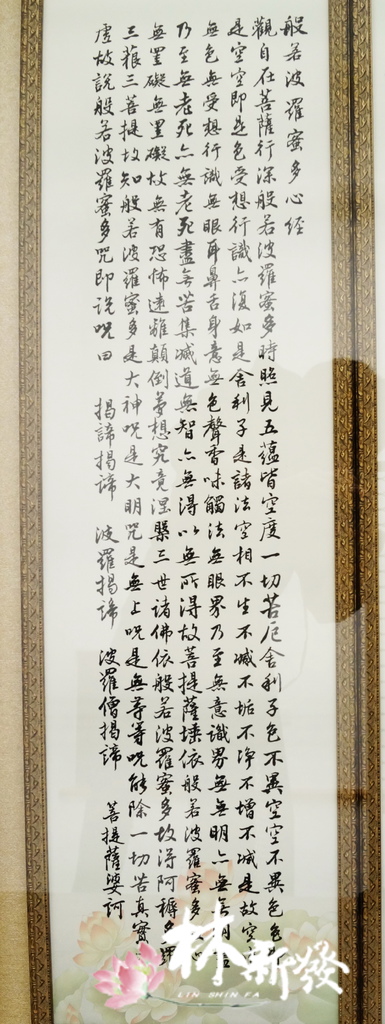 般若波羅蜜多心經
觀自在菩薩行深般若波羅蜜多時照見五蘊皆空度一切苦厄舍利子色不異空空不異色色
是空空即是色受想行識亦復如是舍利子是諸法空相不生不滅不垢不淨不增不減是故空
無色無受想行識無眼耳鼻舌身意無色聲香味觸法無眼界乃至無意識界無無明亦無無明
乃至無老死亦無老死盡無苦集滅道無智亦無得以無所得故菩提薩埵依般若波羅蜜多
無罣礙無罣礙故無有恐怖遠離顛倒夢想究竟涅槃三世諸佛依般若波羅蜜多故得阿耨多羅
三藐三菩提故知般若波羅蜜多是大神咒是大明咒是無上咒是無等等咒能除一切苦真實
虛故說般若波羅蜜多咒即說咒曰 揭諦揭諦 波羅揭諦 波羅僧揭諦 菩提薩婆訶
林新發
LIN SHIN FA